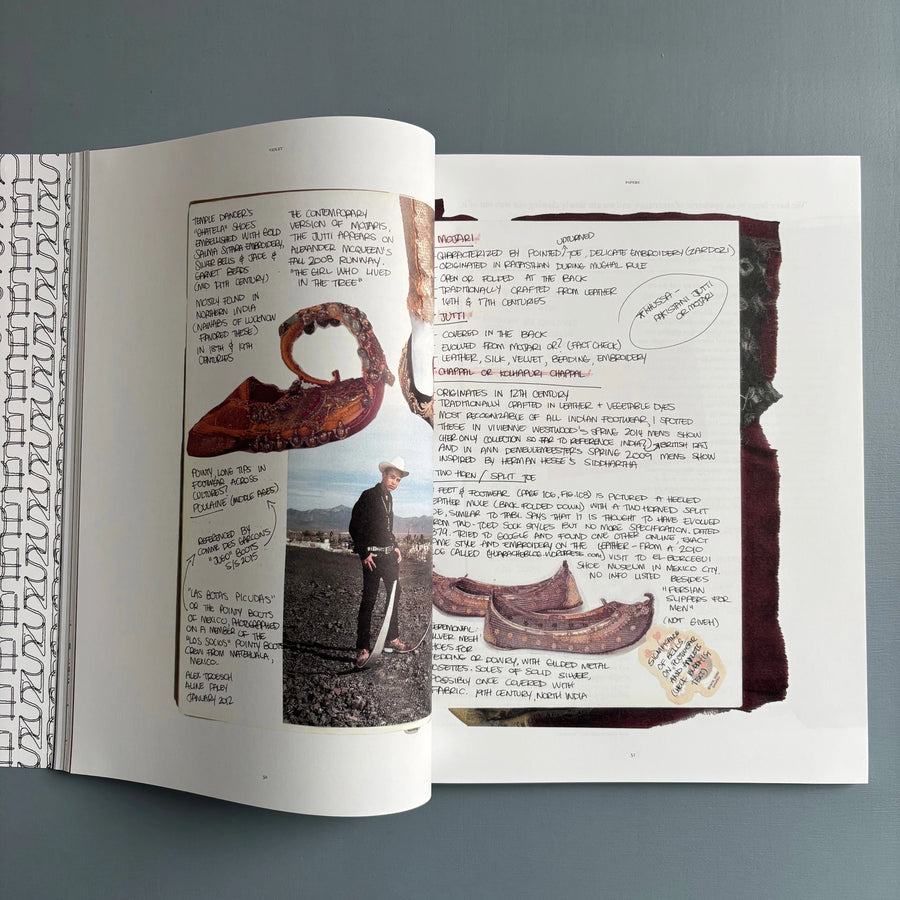 VIOLET
TEMPLE DANCER'S
"GHATELA" SHOES
EMBELLISHED WITH GOLD
SALMA SITARA EMBROIDERY,
SILVER BELLS & JADE &
GARNET BEADS
(MID 19TH CENTURY)
MOSTLY FOUND IN
NORTHERN INDIA
(NAWABS OF LUCKNOW
FAVORED THESE)
IN 18TH & 19TH
CENTURIES
THE CONTEMPORARY
VERSION OF MOJARIS,
THE JUTTI APPEARS ON
ALEXANDER MCQUEEN'S
FALL 2008 RUNWAY.
"THE GIRL WHO LIVED
IN THE TREE"
POINTY, LONG TIPS IN
FOOTWEAR ACROSS
CULTURES?
POULAINE (MIDDLE AGES)
REFERENCED BY
COMME DES GARCONS
BOOTS
S/S 2015
"LAS BOTAS PICUDAS"
OR THE POINTY BOOTS
OF MEXICO, PHOTOGRAPHED
ON A MEMBER OF THE
"LOS SOCIOS" POINTY BOOTS
CREW FROM MATEHUALA,
MEXICO.
ALEX TROESCH
ALINE PALEY
JANUARY 2012
52
PAPERS
MOJARI
UPTURNED
CHARACTERIZED BY POINTED/ TOE, DELICATE EMBROIDERY (ZARDOZI)
- ORIGINATED IN RAJASTHAN DURING MUGHAL RULE
- OPEN OR FOLDED AT THE BACK
- TRADITIONALLY CRAFTED FROM LEATHER
- 16TH & 17TH CENTURIES
*KHUSSA -
PAKISTANI JUTTI
OR MOJARI
- JUTTI
- COVERED IN THE BACK
- EVOLVED FROM MOJARI OR? (FACT CHECK)
- LEATHER, SILK, VELVET, BEADING, EMBROIDERY
CHAPPAL OR KOLHAPURI CHAPPAL
- ORIGINATES IN 12TH CENTURY
TRADITIONALLY CRAFTED IN LEATHER + VEGETABLE DYES
MOST RECOGNIZABLE OF ALL INDIAN FOOTWEAR, I SPOTTED
THESE IN VIVIENNE WESTWOOD'S SPRING 2014 MEN'S SHOW
(HER ONLY COLLECTION SO FAR TO REFERENCE INDIA?) BRITISH RAJ
AND IN ANN DEMEULEMEESTER'S SPRING 2009 MEN'S SHOW
INSPIRED BY HERMAN HESSE'S SIDDHARTHA
TWO HORN / SPLIT TOE
FEET & FOOTWEAR (PAGE 106, FIG. 103) IS PICTURED A HEELED
EATHER MULE (BACK FOLDED DOWN) WITH A TWO HORNED SPLIT
OE, SIMILAR TO TABI. SAYS THAT IT IS THOUGHT TO HAVE EVOLVED
ROM TWO-TOED SOCK STYLES BUT NO MORE SPECIFICATION. DATED
879. TRIED TO GOOGLE AND FOUND ONE OTHER ONLINE, EXACT
AME STYLE AND EMBROIDERY ON THE LEATHER - FROM A 2010
CALLED VISIT TO EL BORCEGUI
SHOE MUSEUM IN MEXICO CITY.
NO INFO LISTED BESIDES
"PERSIAN
SLIPPERS FOR
MEN"
(NOT GIVEN)
EREMONIAL
ILVER MESH
HOES FOR
EDDING OR DOWRY, WITH GILDED METAL
OSETTES. SOLES OF SOLID SILVER,
OSSIBLY ONCE COVERED WITH
FABRIC. 19TH CENTURY, NORTH INDIA
SIGNIFICANCE
OF BELLS
ON FOOTWEAR
AND ANKLETS
51